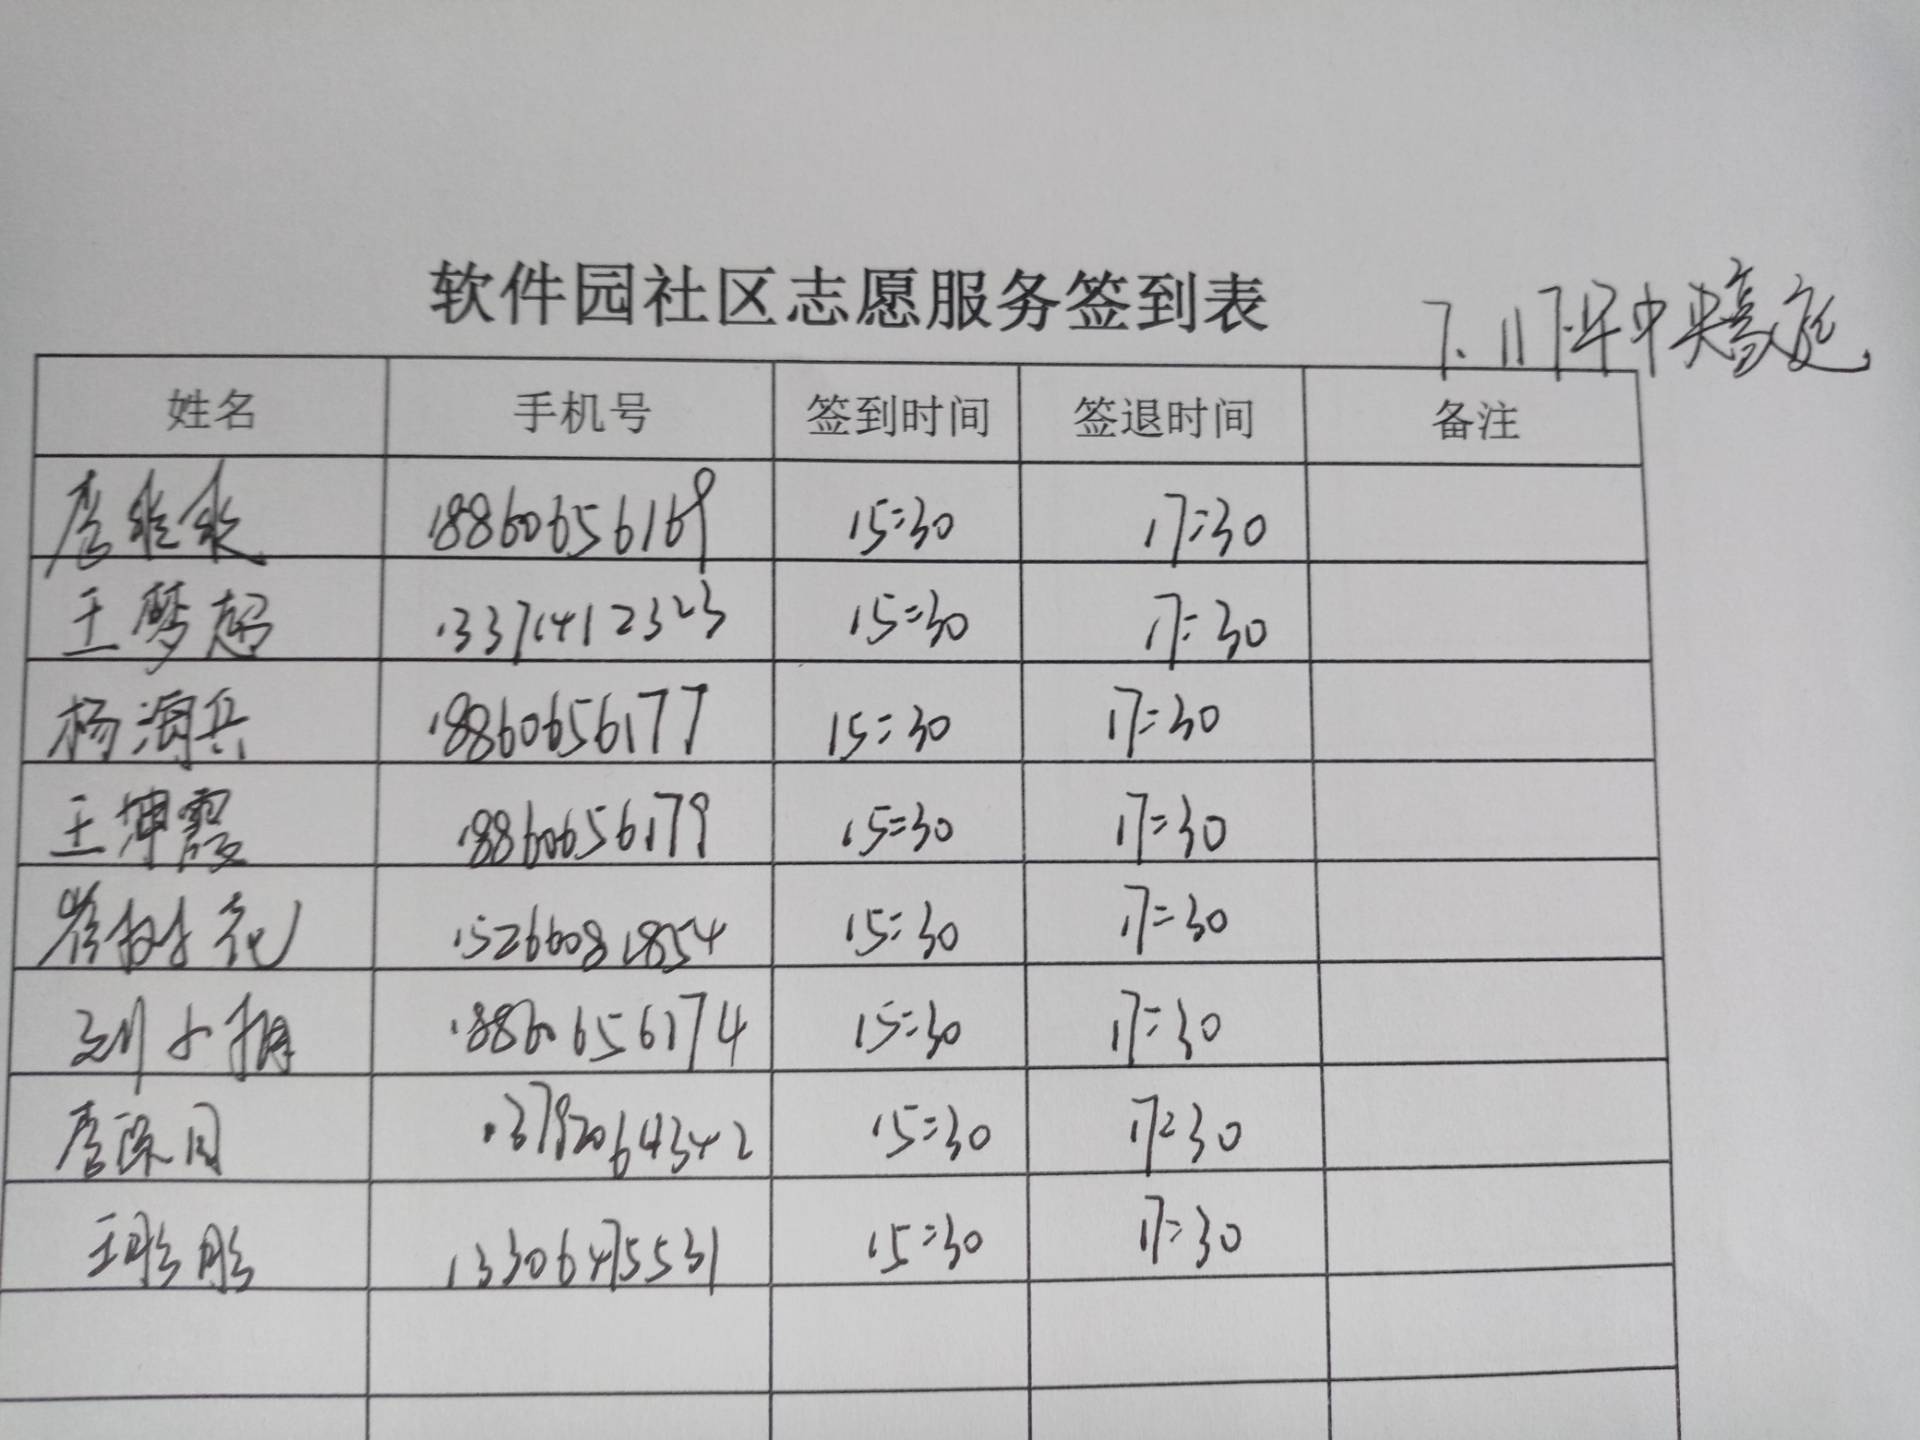 软件园社区志愿服务签到表
7.11下午中央豪庭
姓名 手机号 签到时间 签退时间 备注
18860656169 15:30 17:30
王梦超 13371412323 15:30 17:30
杨润兵 18860656177 15:30 17:30
王坤霞 18860656179 15:30 17:30
崔树花 15266081854 15:30 17:30
刘小捐 18860656174 15:30 17:30
13792064342 15:30 17:30
王彤彤 13306475531 15:30 17:30